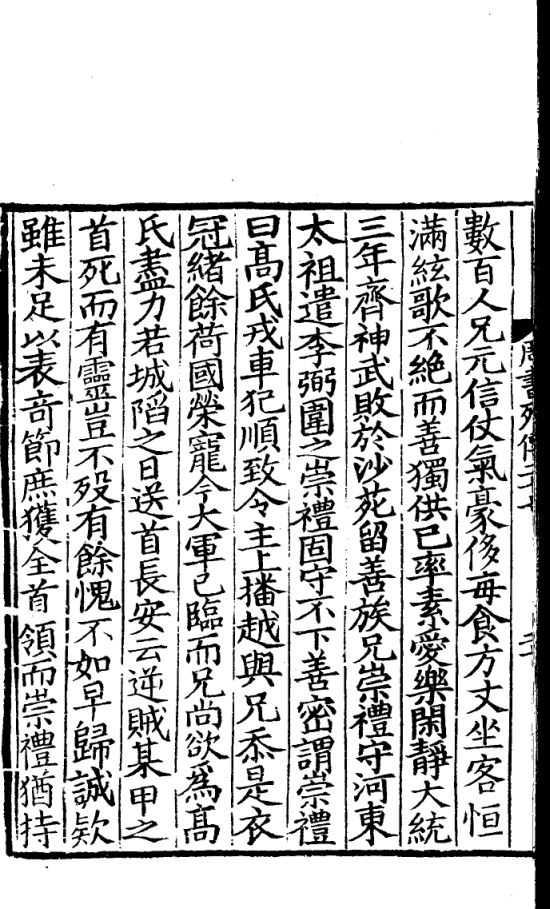 數百人兄元信仗氣豪侈每食方丈坐客恒
滿絃歌不絶而善獨供己率素愛樂閑靜大統
三年齊神武敗於沙苑留善族兄崇禮守河東
太祖遣李弼圍之崇禮固守不下善密謂崇禮
曰髙氏戎車犯順致令主上播越與兄忝是衣
冠緒餘荷國榮寵今大軍已臨而兄尚欲爲髙
氏盡力若城䧟之日送首長安云逆賊某甲之
首死而有靈豈不殁有餘愧不如早歸誠欵
雖未足以表竒節庶獲全首領而崇禮猶持